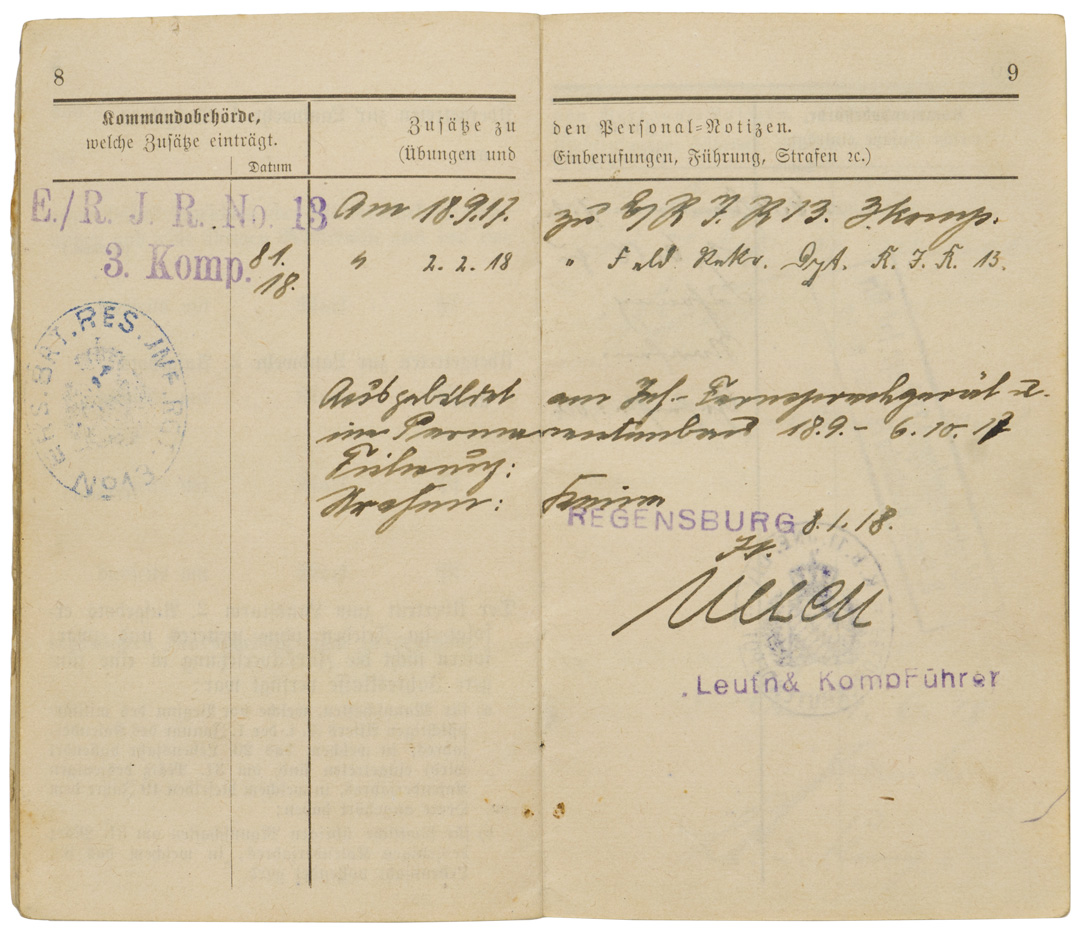 8
9
Kommandobehörde,
welche Zusätze einträgt.
Datum
Zusätze zu den Personal-Notizen.
(Übungen und Einberufungen, Führung, Strafen ꝛc.)
E./R. J. R. No. 13
3. Komp.
8 1.
18.
Am 18.9.17. zu E/R J. R 13. 3 Komp.
" 2. 2. 18 " Feld Rekr. Dpt. R. J. R. 13.
Ausgebildet am Inf.-Fernsprechgerät u.
im Permanentenbau 18.9.– 6.10.17
Führung:
Strafen: Keine
REGENSBURG 8.1.18.
Leutn& KompFührer
ERS. BAT. RES. INF. RGT.